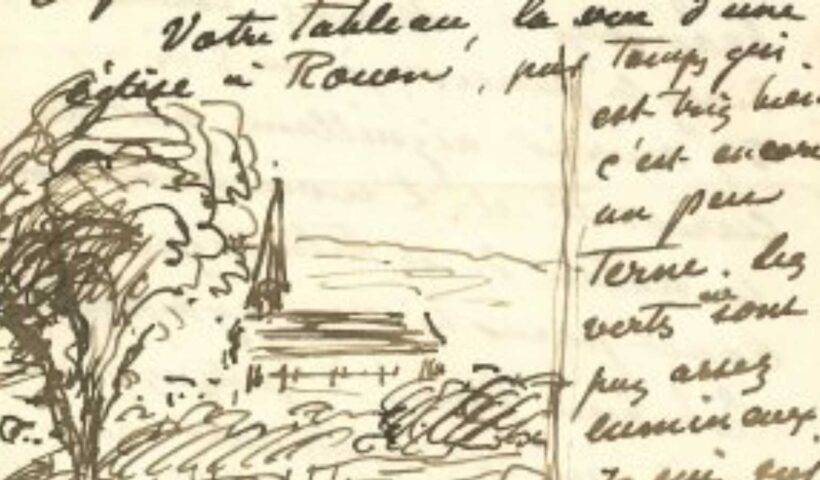 Votre tableau, la vue d'une
église à Rouen, par Temps gris
est très bien
c'est encore
un peu
Terne. les
verts ne sont
pas assez
lumineux